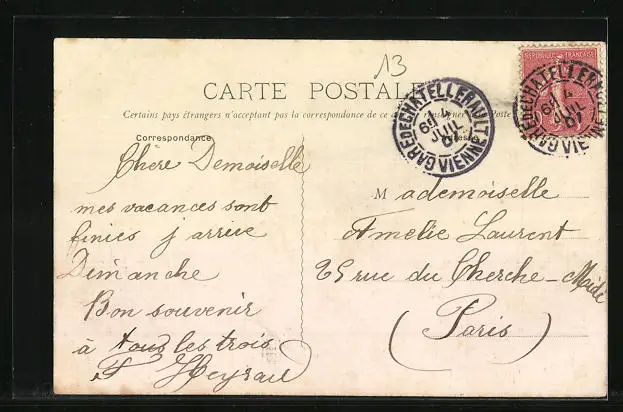 13
CARTE POSTALE
Certains pays étrangers n'acceptent pas la correspondance de ce
REPUBLIQUE FRANÇAISE
GARE DE CHATELLERAULT VIENNE
4
JUIL
GARE DE CHATELLERAULT VIENNE
4
JUIL
Correspondance
Chère Demoiselle
mes vacances sont
finies j'arrive
Dimanche
Bon souvenir
à tous les trois
Mademoiselle
Amelie Laurent
25 rue du Cherche-Midi
(Paris)